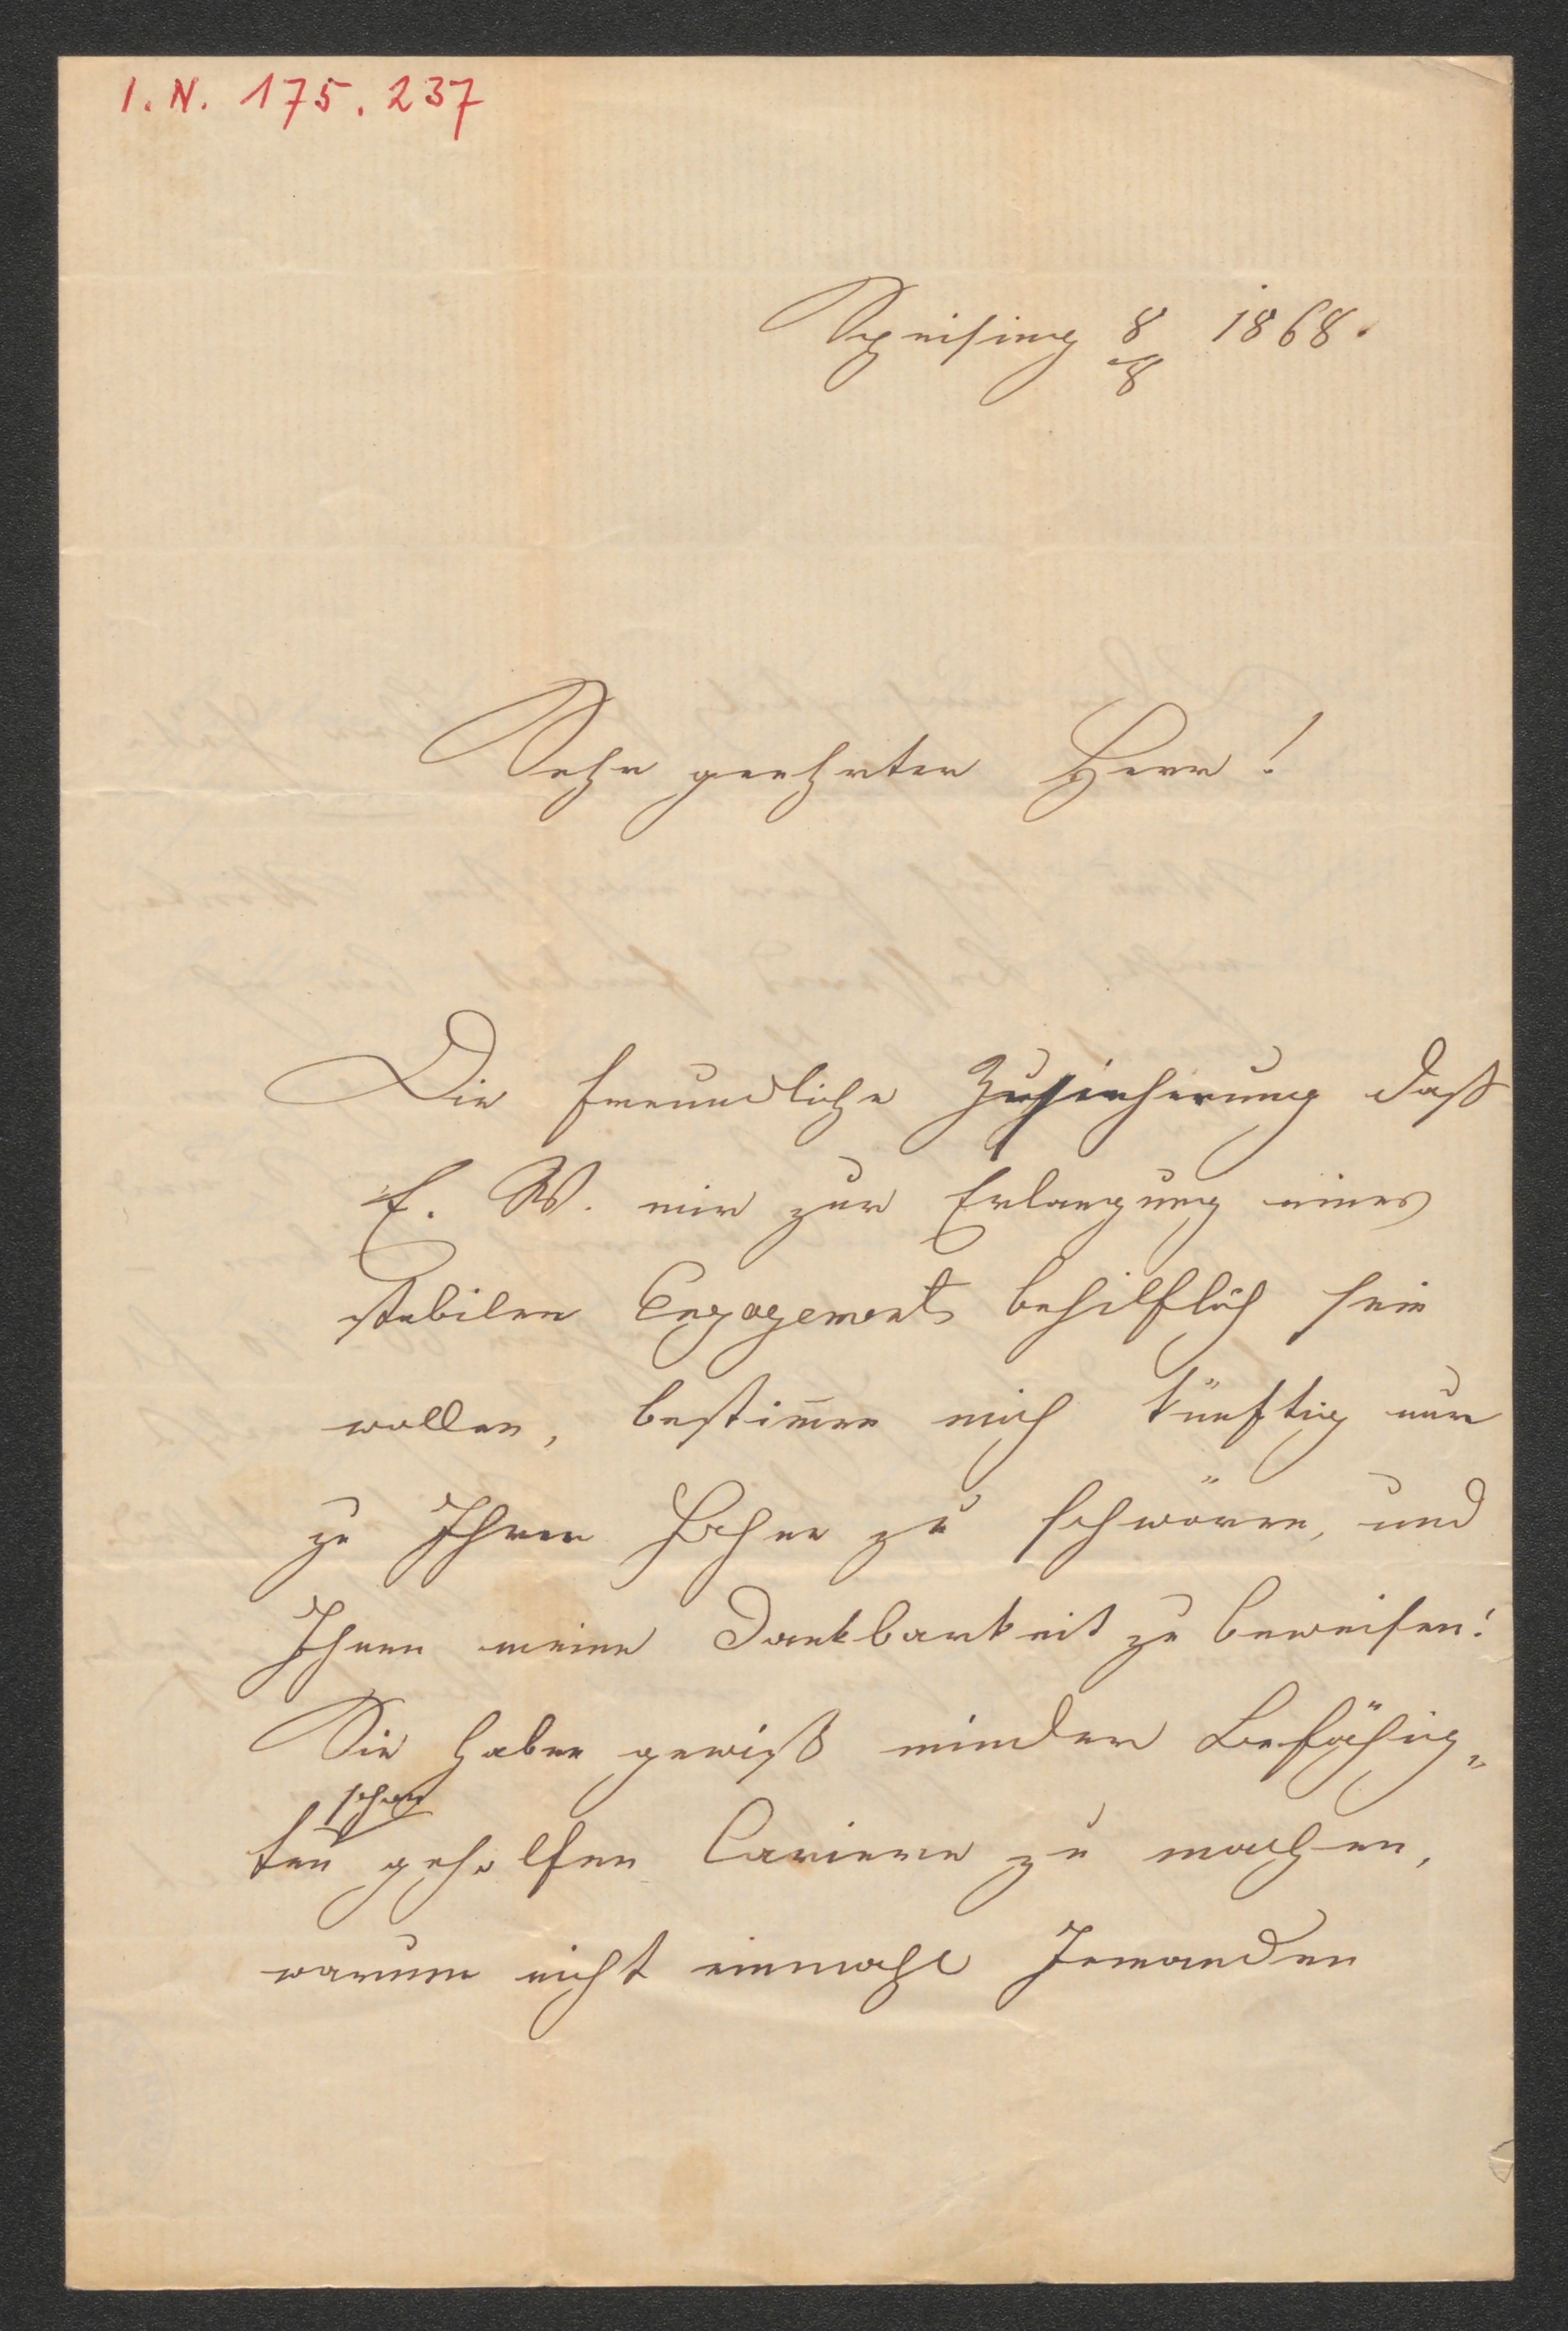 I. N. 175.237
Speising 8/8 1868.
Sehr geehrter Herr!
Die freundliche Zusicherung daß
E. W. mir zur Erlangung eines
stabilen Engagements behilflich sein
wollen, bestimmen mich künftig nur
zu Ihrer Fahne zu schwören, und
Ihnen meine Dankbarkeit zu beweisen!
Sie haben gewiß minder Befähig„
schon
ten geholfen Cariere zu machen,
warum nicht einmahl Jemanden